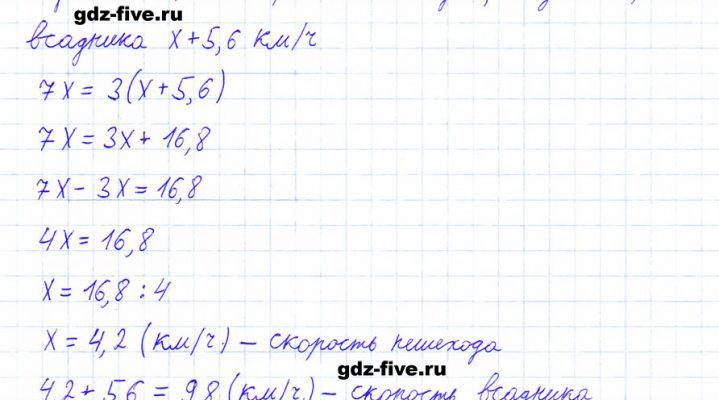 gdz-five.ru
всадника x+5,6 км/ч
7x = 3(x+5,6)
7x = 3x + 16,8
7x - 3x = 16,8
4x = 16,8
x = 16,8 : 4
x = 4,2 (км/ч) – скорость пешехода
gdz-five.ru
4,2 + 5,6 = 9,8 (км/ч) – скорость всадника